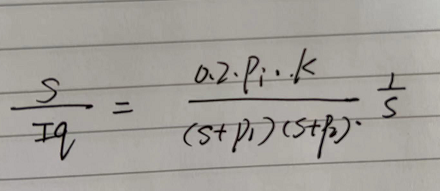 S/Iq = 0.2·P₁··K/(S+P₁)(S+P₂)· 1/S